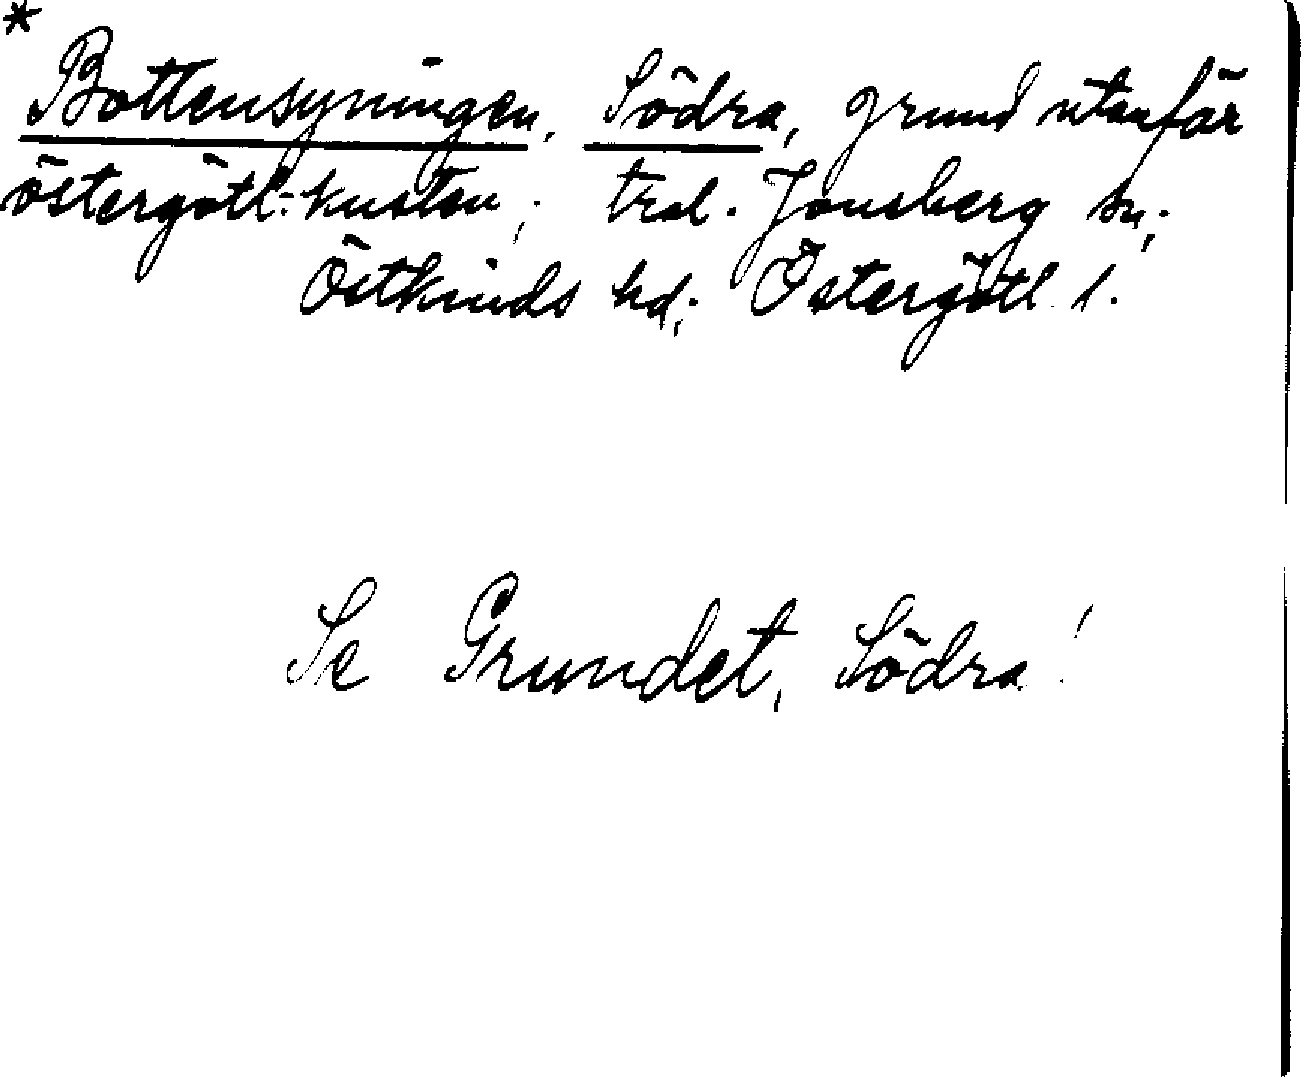 *
Bottensyningen, Södra, grund utanför
östergötl.-kusten; trol. Jonsberg sn;
Östkinds hd; Östergötl. l.
Se Grundet, Södra!